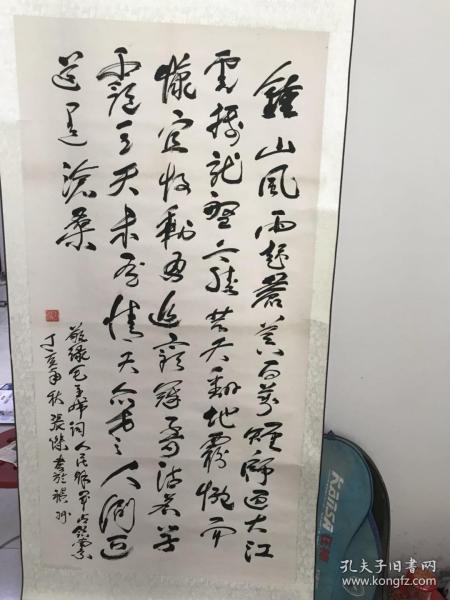 鍾山風雨起蒼黃百萬雄師過大江
虎踞龍盤今勝昔天翻地覆慨而
慷宜將剩勇追窮寇不可沽名學
霸王天若有情天亦老人間正
道是滄桑
敬録毛主席詞人民解放軍占領南京
丁亥年秋張書於州
KANSA
孔夫子旧书网
www.kongfz.com